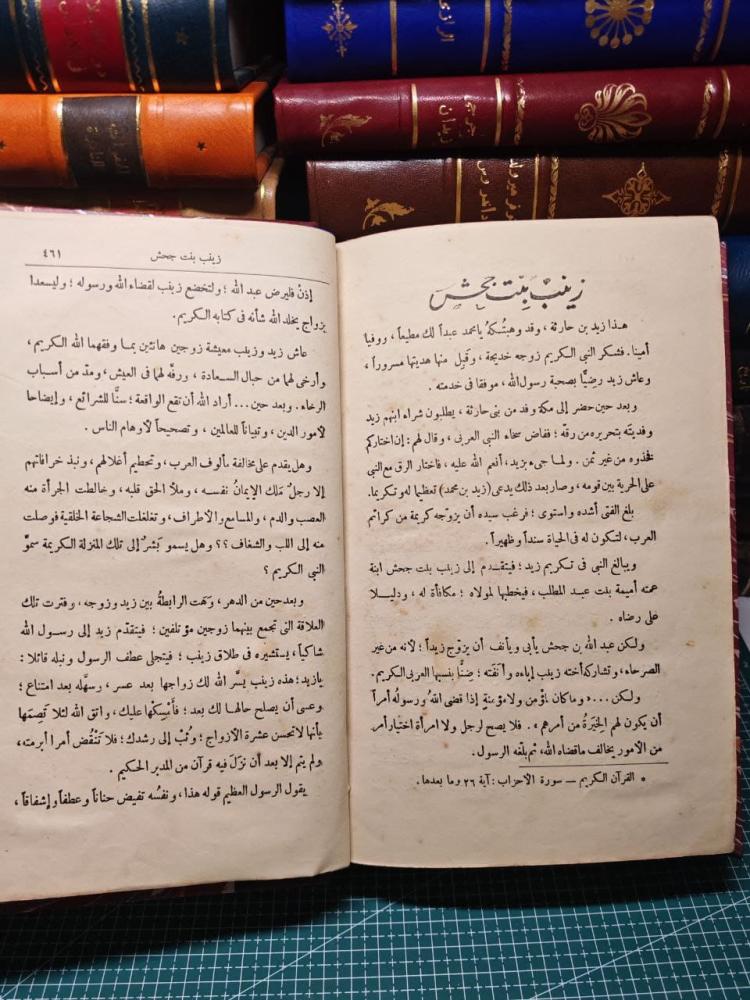 الرافعى
جرجى
زيدان
زينب بنت جحش
هذا زيد بن حارثة ، وقد وهبتُكهُ يا محمد عبداً لك مطيعاً ، ووفيا
أمينا . فشكر النبى الكريم زوجه خديجة ، وقَبِل منها هديتها مسروراً ،
وعاش زيد رضِيًّا بصحبة رسول الله ، موفقا فى خدمته .
وبعد حين حضر إلى مكة وفد من بنى حارثة ، يطلبون شراء ابنهم زيد
وفديته بتحريره من رقه ؛ ففاض سخاء النبى العربى ، وقال لهم : إن اختاركم
فخذوه من غير ثمن . ولما جىء بزيد ، أنعم الله عليه ، فاختار الرق مع النبى
على الحرية بين قومه ، وصار بعد ذلك يدعى (زيد بن محمد) تعظيما له وتكريما.
بلغ الفتى أشده واستوى ؛ فرغب سيده أن يزوّجه كريمة من كرائم
العرب ، لتكون له فى الحياة سنداً وظهيراً .
ويبالغ النبى فى تكريم زيد ؛ فيتقدم إلى زينب بنت جحش ابنة
عمته أميمة بنت عبد المطلب ، فيخطبها لمولاه ؛ مكافأة له ، ودليلا
على رضاه .
ولكن عبد الله بن جحش يأبى ويأنف أن يزوّج زيداً ؛ لأنه من غير
الصرحاء ، وتشاركه أخته زينب إباءه وأنَفَته ؛ ضِنًّا بنسبها العربى الكريم.
ولكن ... « وما كان لمؤمن ولا مؤمنةٍ إذا قضى اللهُ ورسولُه أمراً
أن يكون لهم الخِيَرَةُ من أمرهم * » . فلا يصح لرجل ولا امرأة اختيار أمر
من الأمور يخالف ما قضاه الله ، ثم بلّغه الرسول .
* القرآن الكريم — سورة الأحزاب : آية ٢٦ وما بعدها .
زينب بنت جحش
٤٦١
إذنْ فليرض عبد الله ؛ ولتخضع زينب لقضاء الله ورسوله ؛ وليسعدا
بزواج يخلد الله شأنه فى كتابه الكريم .
عاش زيد وزينب معيشة زوجين هانئين بما وفقهما الله الكريم ،
وأرخى لهما من حبال السعادة ، ورفّه لهما فى العيش ، ومدّ من أسباب
الرخاء . وبعد حين ... أراد الله أن تقع الواقعة ؛ سنًّا للشرائع ، وإيضاحا
لأمور الدين ، وتبياناً للعالمين ، وتصحيحاً لأوهام الناس .
وهل يقدم على مخالفة مألوف العرب ، وتحطيم أغلالهم ، ونبذ خرافاتهم
إلا رجلٌ مَلك الإيمانُ نفسه ، وملأ الحق قلبه ، وخالطت الجرأة منه
العصب والدم ، والمسامع والأطراف ، وتغلغلت الشجاعة الخلقية فوصلت
منه إلى اللب والشغاف ؟؟ وهل يسمو بَشرٌ إلى تلك المنزلة الكريمة سموّ
النبى الكريم ؟
وبعد حين من الدهر ، وَهَت الرابطةُ بين زيد وزوجه ، وفترت تلك
العلاقة التى تجمع بينهما زوجين مؤتلفين ؛ فيتقدّم زيد إلى رسول الله
شاكياً ، يستشيره فى طلاق زينب ؛ فيتجلى عطف الرسول ونبله قائلا :
يا زيد ؛ هذه زينب يسَّر الله لك زواجها بعد عسر ، وسهَّله بعد امتناع ؛
وعسى أن يصلح حالها لك بعد ؛ فأَمْسِكها عليك ، واتق الله لئلا تَصِمَها
بأنها لا تحسن عشرة الأزواج ؛ وثُبْ إلى رشدك ؛ فلا تَنْقُض أمرا أبرمته ،
ولم يتم إلا بعد أن نزَلَ فيه قرآن من المدبر الحكيم .
يقول الرسول العظيم قوله هذا ، ونفسُه تفيض حناناً وعطفاً وإشفاقاً ،